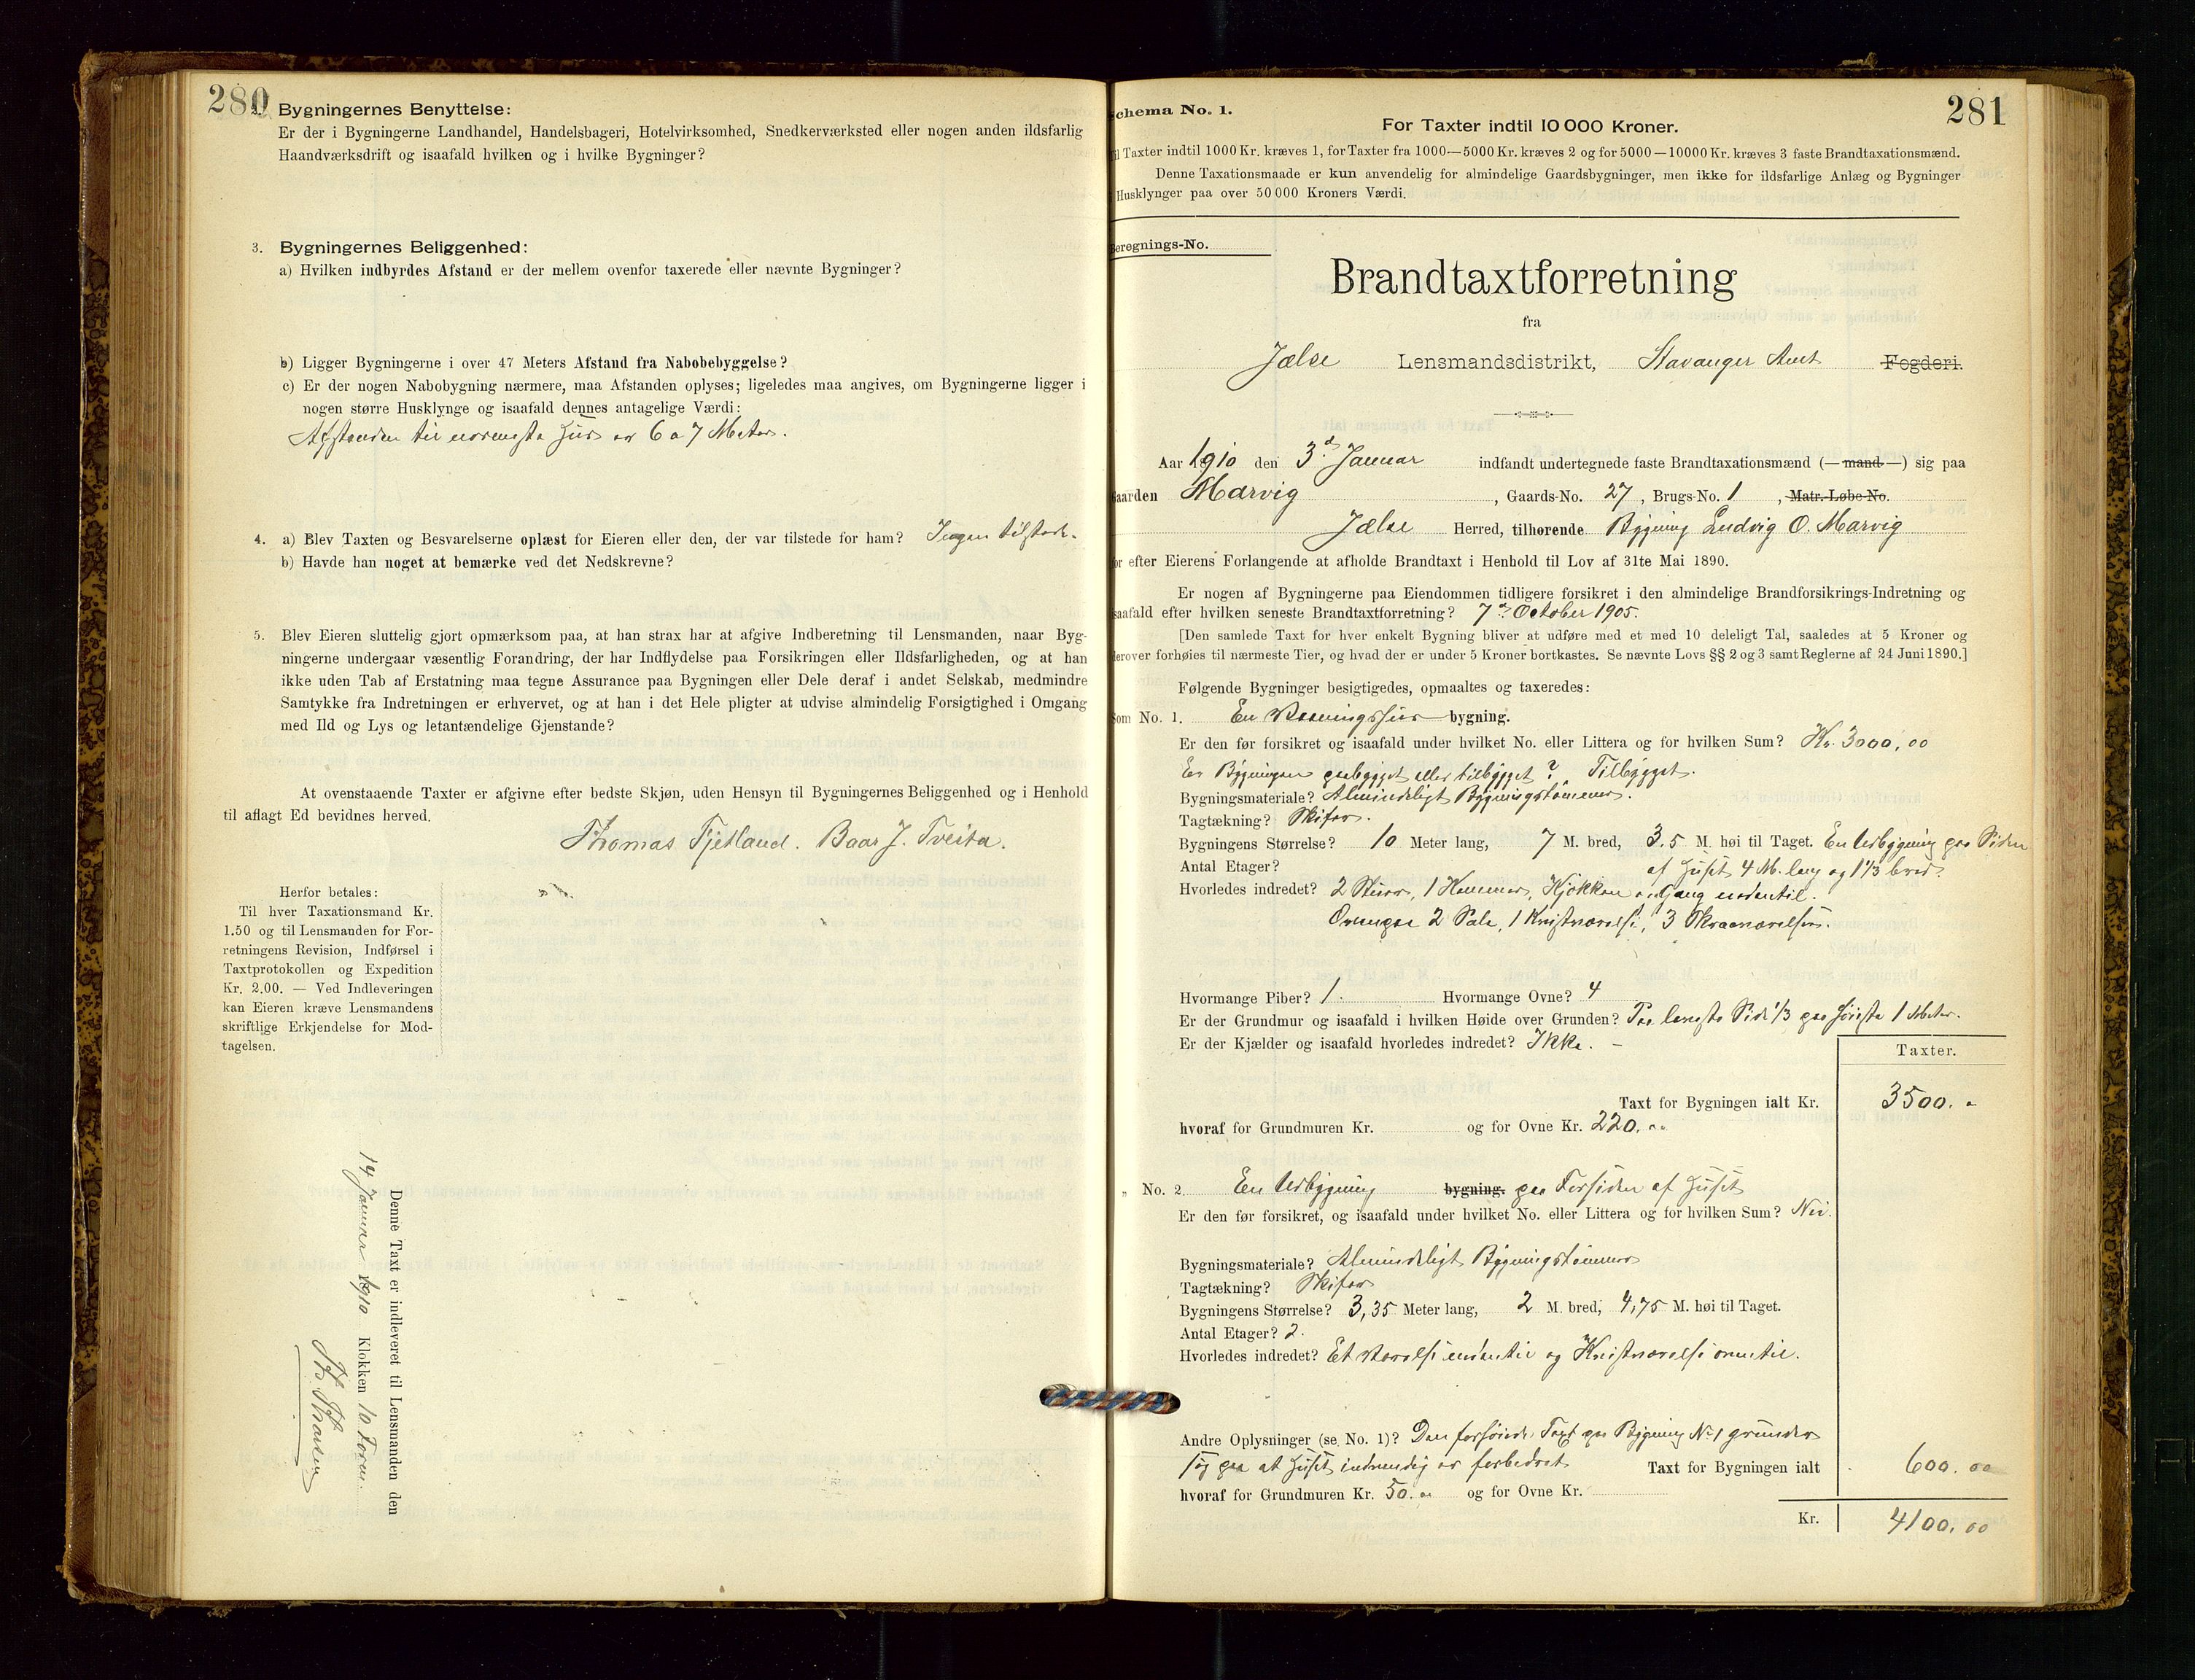 280
2. Bygningernes Benyttelse:
Er der i Bygningerne Landhandel, Handelsbageri, Hotelvirksomhed, Snedkerværksted eller nogen anden ildsfarlig
Haandværksdrift og isaafald hvilken og i hvilke Bygninger?
3. Bygningernes Beliggenhed:
a) Hvilken indbyrdes Afstand er der mellem ovenfor taxerede eller nævnte Bygninger?
b) Ligger Bygningerne i over 47 Meters Afstand fra Nabobebyggelse?
c) Er der nogen Nabobygning nærmere, maa Afstanden oplyses; ligeledes maa angives, om Bygningerne ligger i
nogen større Husklynge og isaafald dennes antagelige Værdi:
Afstanden til nærmeste Hus er 6 a 7 Meter.
4. a) Blev Taxten og Besvarelserne oplæst for Eieren eller den, der var tilstede for ham? Ingen tilstede.
b) Havde han noget at bemærke ved det Nedskrevne?
5. Blev Eieren sluttelig gjort opmærksom paa, at han strax har at afgive Indberetning til Lensmanden, naar Byg-
ningerne undergaar væsentlig Forandring, der har Indflydelse paa Forsikringen eller Ildsfarligheden, og at han
ikke uden Tab af Erstatning maa tegne Assurance paa Bygningen eller Dele deraf i andet Selskab, medmindre
Samtykke fra Indretningen er erhvervet, og at han i det Hele pligter at udvise almindelig Forsigtighed i Omgang
med Ild og Lys og letantændelige Gjenstande?
At ovenstaaende Taxter er afgivne efter bedste Skjøn, uden Hensyn til Bygningernes Beliggenhed og i Henhold
til aflagt Ed bevidnes herved.
Thomas Fjetland. Baar J. Tveita.
Herfor betales:
Til hver Taxationsmand Kr.
1.50 og til Lensmanden for For-
retningens Revision, Indførsel i
Taxtprotokollen og Expedition
Kr. 2.00. — Ved Indleveringen
kan Eieren kræve Lensmandens
skriftlige Erkjendelse for Mod-
tagelsen.
Denne Taxt er indleveret til Lensmanden den
14 Januar 1910 Klokken 10 Form.
281
Schema No. 1.
For Taxter indtil 10 000 Kroner.
Til Taxter indtil 1000 Kr. kræves 1, for Taxter fra 1000—5000 Kr. kræves 2 og for 5000—10000 Kr. kræves 3 faste Brandtaxationsmænd.
Denne Taxationsmaade er kun anvendelig for almindelige Gaardsbygninger, men ikke for ildsfarlige Anlæg og Bygninger
Husklynger paa over 50 000 Kroners Værdi.
Beregnings-No.
Brandtaxtforretning
fra
Jælse Lensmandsdistrikt, Stavanger Amt Fogderi.
Aar 1910 den 3d Januar indfandt undertegnede faste Brandtaxationsmænd (— mand —) sig paa
Gaarden Marvig, Gaards-No. 27, Brugs-No. 1, Matr.-Løbe-No.
Jælse Herred, tilhørende Bygning Ludvig O. Marvig
for efter Eierens Forlangende at afholde Brandtaxt i Henhold til Lov af 31te Mai 1890.
Er nogen af Bygningerne paa Eiendommen tidligere forsikret i den almindelige Brandforsikrings-Indretning og
isaafald efter hvilken seneste Brandtaxtforretning? 7de October 1905.
[Den samlede Taxt for hver enkelt Bygning bliver at udføre med et med 10 deleligt Tal, saaledes at 5 Kroner og
derover forhøies til nærmeste Tier, og hvad der er under 5 Kroner bortkastes. Se nævnte Lovs §§ 2 og 3 samt Reglerne af 24 Juni 1890.]
Følgende Bygninger besigtigedes, opmaaltes og taxeredes:
Som No. 1. En Vaaningshus bygning.
Er den før forsikret og isaafald under hvilket No. eller Littera og for hvilken Sum? Kr. 3000,00
Er Bygningen paabygget eller tilbygget? Tilbygget.
Bygningsmateriale? Almindeligt Bygningstømmer.
Tagtækning? Skifer.
Bygningens Størrelse? 10 Meter lang, 7 M. bred, 3.5 M. høi til Taget. En Udbygning paa Siden
Antal Etager? af Huset 4 M. lang og 1 1/3 bred.
Hvorledes indredet? 2 Stuer, 1 Kammer, Kjøkken og Gang nedentil.
Ovenpaa 2 Sale, 1 Kvistværelse, 3 Skraaværelser.
Hvormange Piber? 1. Hvormange Ovne? 4
Er der Grundmur og isaafald i hvilken Høide over Grunden? Paa laveste Side 1/3 paa høieste 1 Meter.
Er der Kjælder og isaafald hvorledes indredet? Ikke. —
Taxter.
Taxt for Bygningen ialt Kr. 3500.
hvoraf for Grundmuren Kr. og for Ovne Kr. 220.
" No. 2. En Udbygning bygning. paa Forsiden af Huset
Er den før forsikret, og isaafald under hvilket No. eller Littera og for hvilken Sum? Nei.
Bygningsmateriale? Almindeligt Bygningstømmer
Tagtækning? Skifer
Bygningens Størrelse? 3,35 Meter lang, 2 M. bred, 4,75 M. høi til Taget.
Antal Etager? 2.
Hvorledes indredet? Et Værelse nedentil og Kvistværelse oventil.
Andre Oplysninger (se No. 1)? Den forhøiede Taxt paa Bygning No 1 grunder
sig paa at Huset indvendig er forbedret Taxt for Bygningen ialt 600.00
hvoraf for Grundmuren Kr. 50. og for Ovne Kr.
Kr. 4100.00